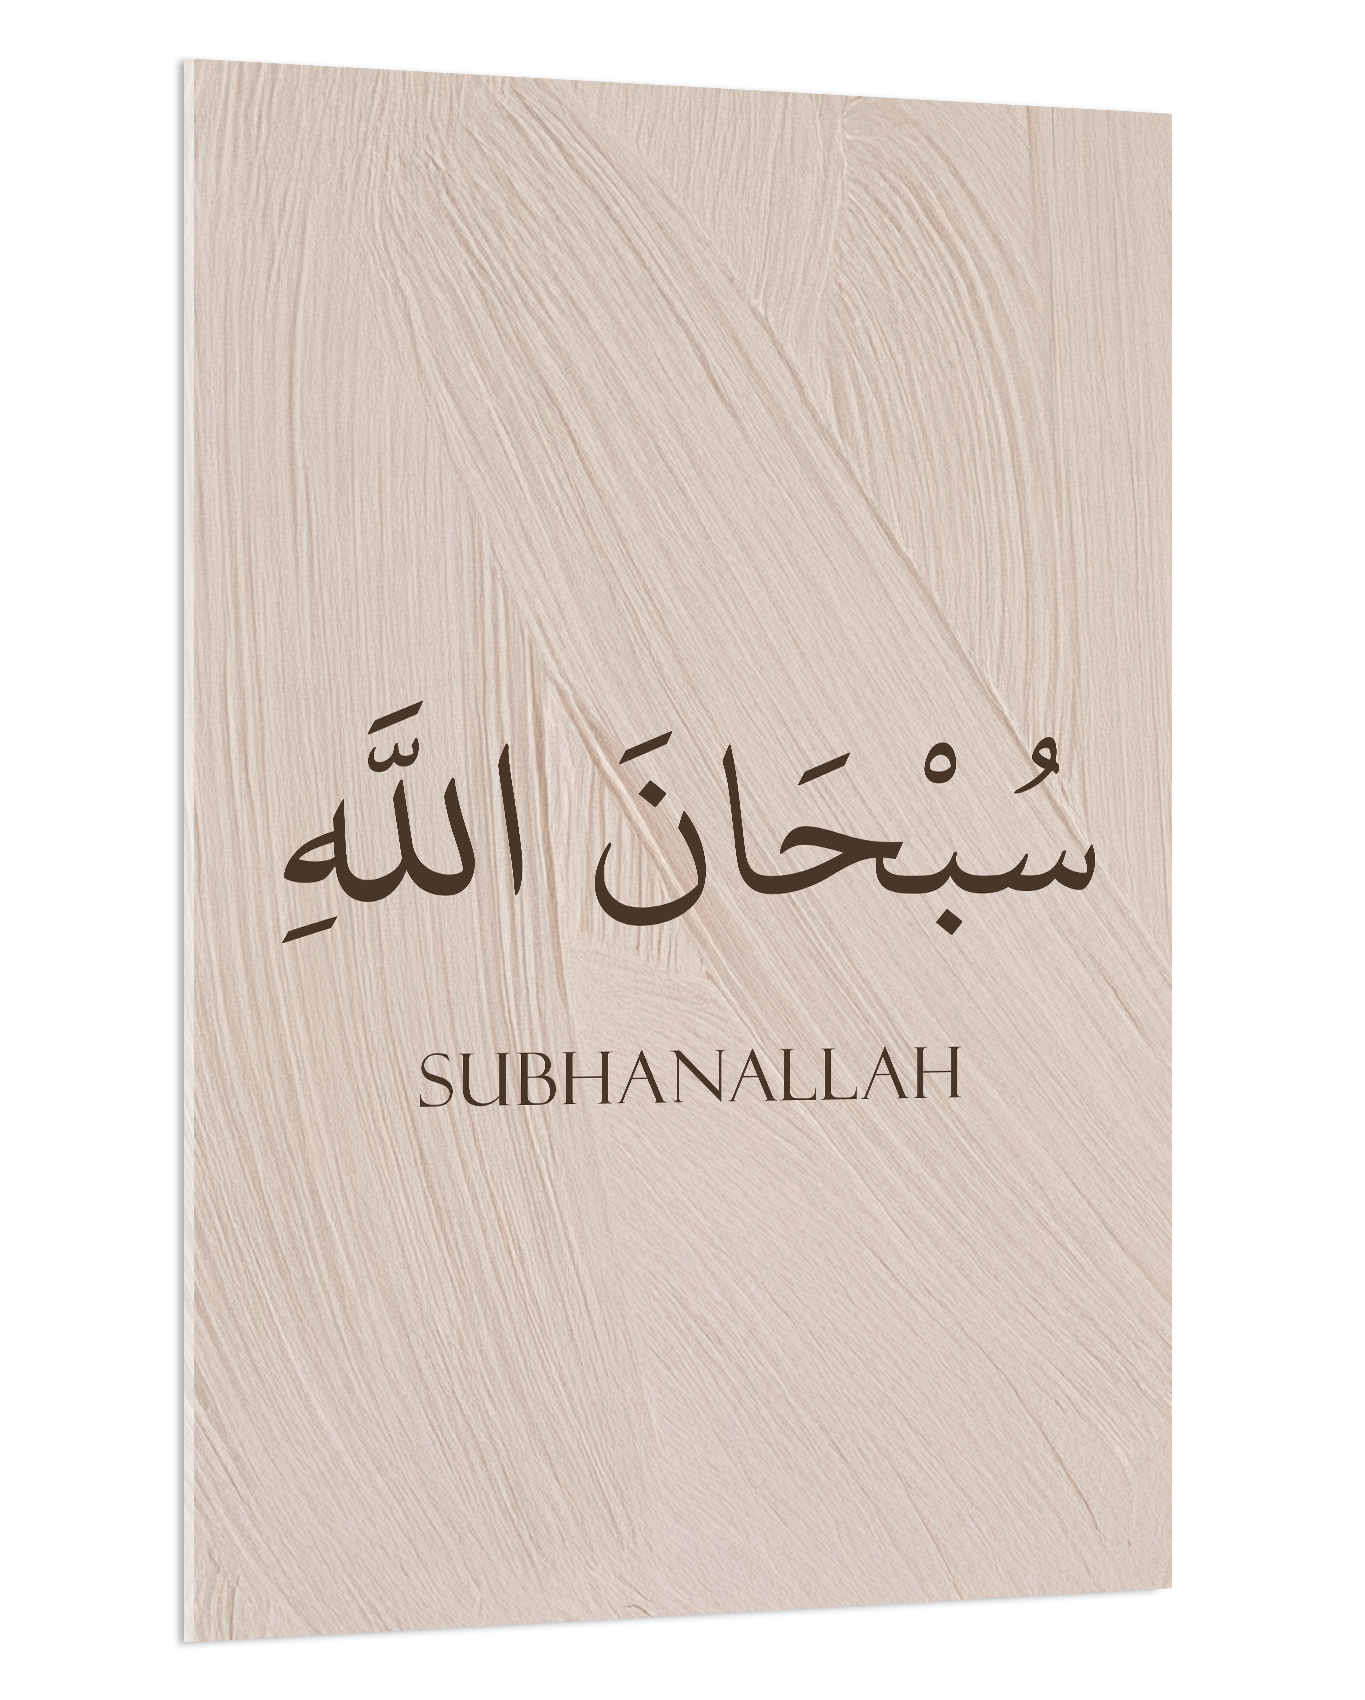 سُبْحَانَ اللَّهِ
SUBHANALLAH